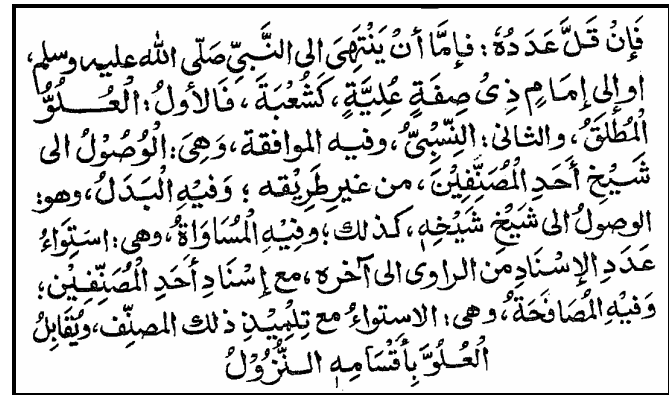 فَإِنْ قَلَّ عَدَدُهُ: فَإِمَّا أَنْ يَنْتَهِيَ الى النَّبِيِّ صَلّى الله عليه وسلم،
او إلى إِمَامٍ ذِىْ صِفَةٍ عُلِيَّةٍ، كَشُعْبَةَ، فَالأولُ: الْعُلُوُّ
الْمُطْلَقُ، والثانى: النِّسْبِىُّ، وفيه الموافقة، وَهِىَ: الْوُصُوْلُ الى
شَيْخِ أَحَدِ الْمُصَنِّفِيْنَ، من غيرِ طَرِيْقه؛ وَفِيْهِ الْبَدَلُ، وهو:
الوصولُ الى شَيْخِ شَيْخِهٖ، كذلك؛ وفِيْهِ الْمُسَاوَاةُ، وهى: اسْتِوَاءُ
عَدَدِ الإسْنَادِ مَن الراوى الى آخره، مع إِسْنَادِ أَحَدِ الْمُصَنِّفِيْن؛
وَفيْهِ الْمُصَافَحَةُ، وهى: الاستواءُ مع تِلْمِيْذِ ذلك المصنِّف، ويُقَابِلُ
الْعُلُوَّ بِأَقْسَامِهٖ النُّزُوْلُ